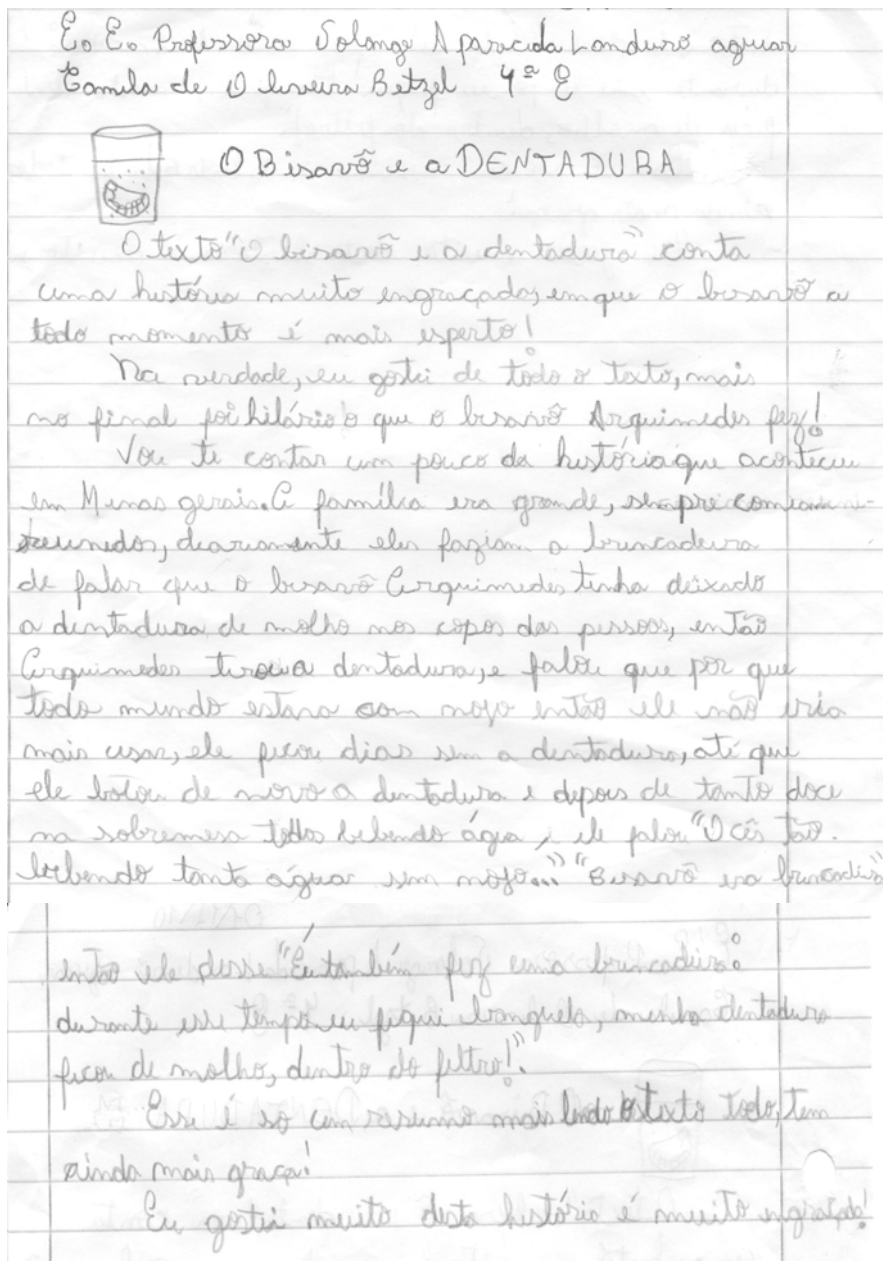 E. E. Professora Solange Aparecida Landuro aguiar
Camila de Oliveira Betzel 4ª E
O Bisavô e a DENTADURA
O texto "O bisavô e a dentadura" conta
uma história muito engraçada, em que o bisavô a
todo momento é mais esperto!
Na verdade, eu gostei de todo o texto, mais
no final foi hilário o que o bisavô Arquimedes fez!
Vou te contar um pouco da história que aconteceu
em Minas gerais. A família era grande, sempre comiam
reunidos, diariamente eles faziam a brincadeira
de falar que o bisavô Arquimedes tinha deixado
a dentadura de molho nos copos das pessoas, então
Arquimedes tirou a dentadura, e falou que por que
todo mundo estava com nojo então ele não iria
mais usar, ele ficou dias sem a dentadura, até que
ele botou de novo a dentadura e depois de tanto doce
na sobremesa todos bebendo água, e ele falou "Ocês tão
bebendo tanta água sem nojo..." "Bisavô era brincadeira"
então ele disse "Eu também fez uma brincadeira:
durante esse tempo eu fiquei banguelo, minha dentadura
ficou de molho, dentro do filtro!".
Esse é só um resumo mais lendo o texto todo, tem
ainda mais graça!
Eu gostei muito desta história é muito engraçada!